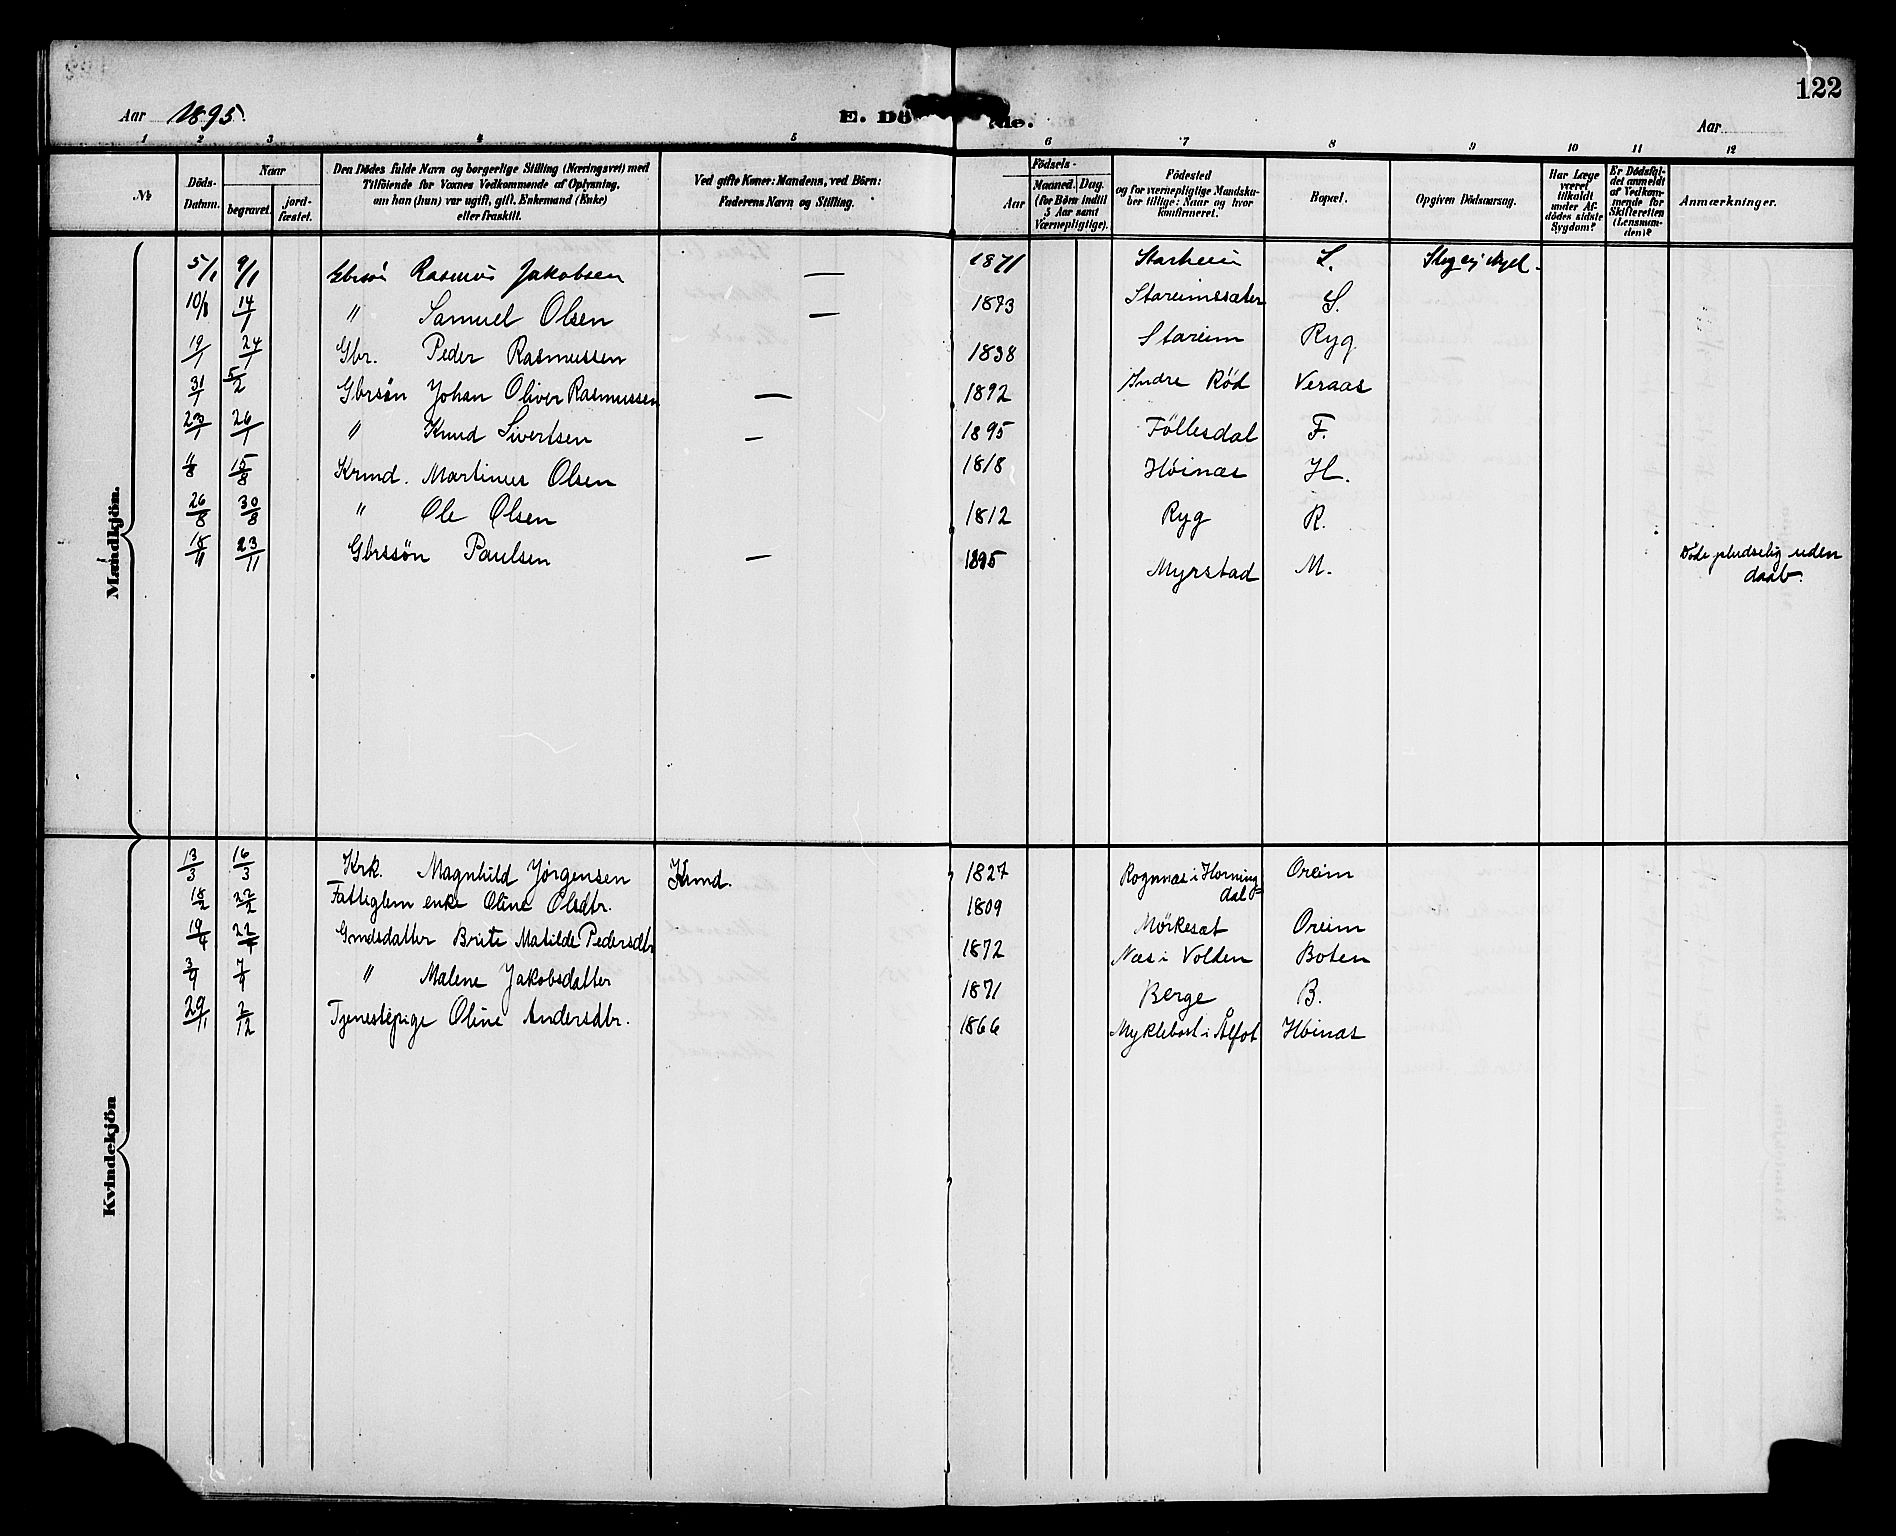 122
Aar 1895.
E. Dö de.
Aar
1 2 3 4 5 6 7 8 9 10 11 12
No
Döds-Datum.
Naar
begravet.
jord-fæstet.
Den Dödes fulde Navn og borgerlige Stilling (Næringsvei) med
Tilföiende for Voxnes Vedkommende af Oplysning,
om han (hun) var ugift, gift, Enkemand (Enke)
eller fraskilt.
Ved gifte Koner: Mandens, ved Börn:
Faderens Navn og Stilling.
Födsels-
Aar
Maaned. Dag.
(for Börn indtil
5 Aar samt
Værnepligtige).
Födested
og for værnepligtige Mandska-
ber tillige: Naar og hvor
konfirmeret.
Bopæl.
Opgiven Dödsaarsag.
Har Læge
været
tilkaldt
under Af-
dödes sidste
Sygdom?
Er Dödsfal-
det anmeldt
af Vedkom-
mende for
Skifteretten
(Lensman-
den)?
Anmærkninger.
Mandkjön.
5/1 9/1 Gbrsön Rasmus Jakobsen — 1871 Starheim S.
14/1 " Samuel Olsen — 1873 Stareimssæter S.
19/1 24/1 Gbr. Peder Rasmussen 1838 Stareim Ryg
31/1 5/2 Gbrsøn Johan Oliver Rasmussen — 1892 Indre Rød Veraas
23/1 26/1 " Knud Sivertsen — 1895 Föllesdal F.
11/8 15/8 Krmd. Martinus Olsen 1818 Høinæs H.
26/8 30/8 " Ole Olsen 1812 Ryg R.
23/11 Gbrssøn Paulsen — 1895 Myrstad M. Døde pludselig uden
daab.
Kvindekjön
13/3 16/3 Krk. Magnhild Jørgensen Krmd. 1827 Rognnæs i Horning
dal Oreim
18/2 22/2 Fattiglem enke Oline Olsdtr. 1809 Mørkesæt Oreim
19/4 22/4 Gmdsdatter Brite Matilde Pedersdtr 1872 Næs i Volden Boten
3/9 7/9 " Malene Jakobsdatter 1871 Berge B.
29/11 2/12 Tjenestepige Oline Andersdtr. 1866 Myklebost i Ålfot Høinæs